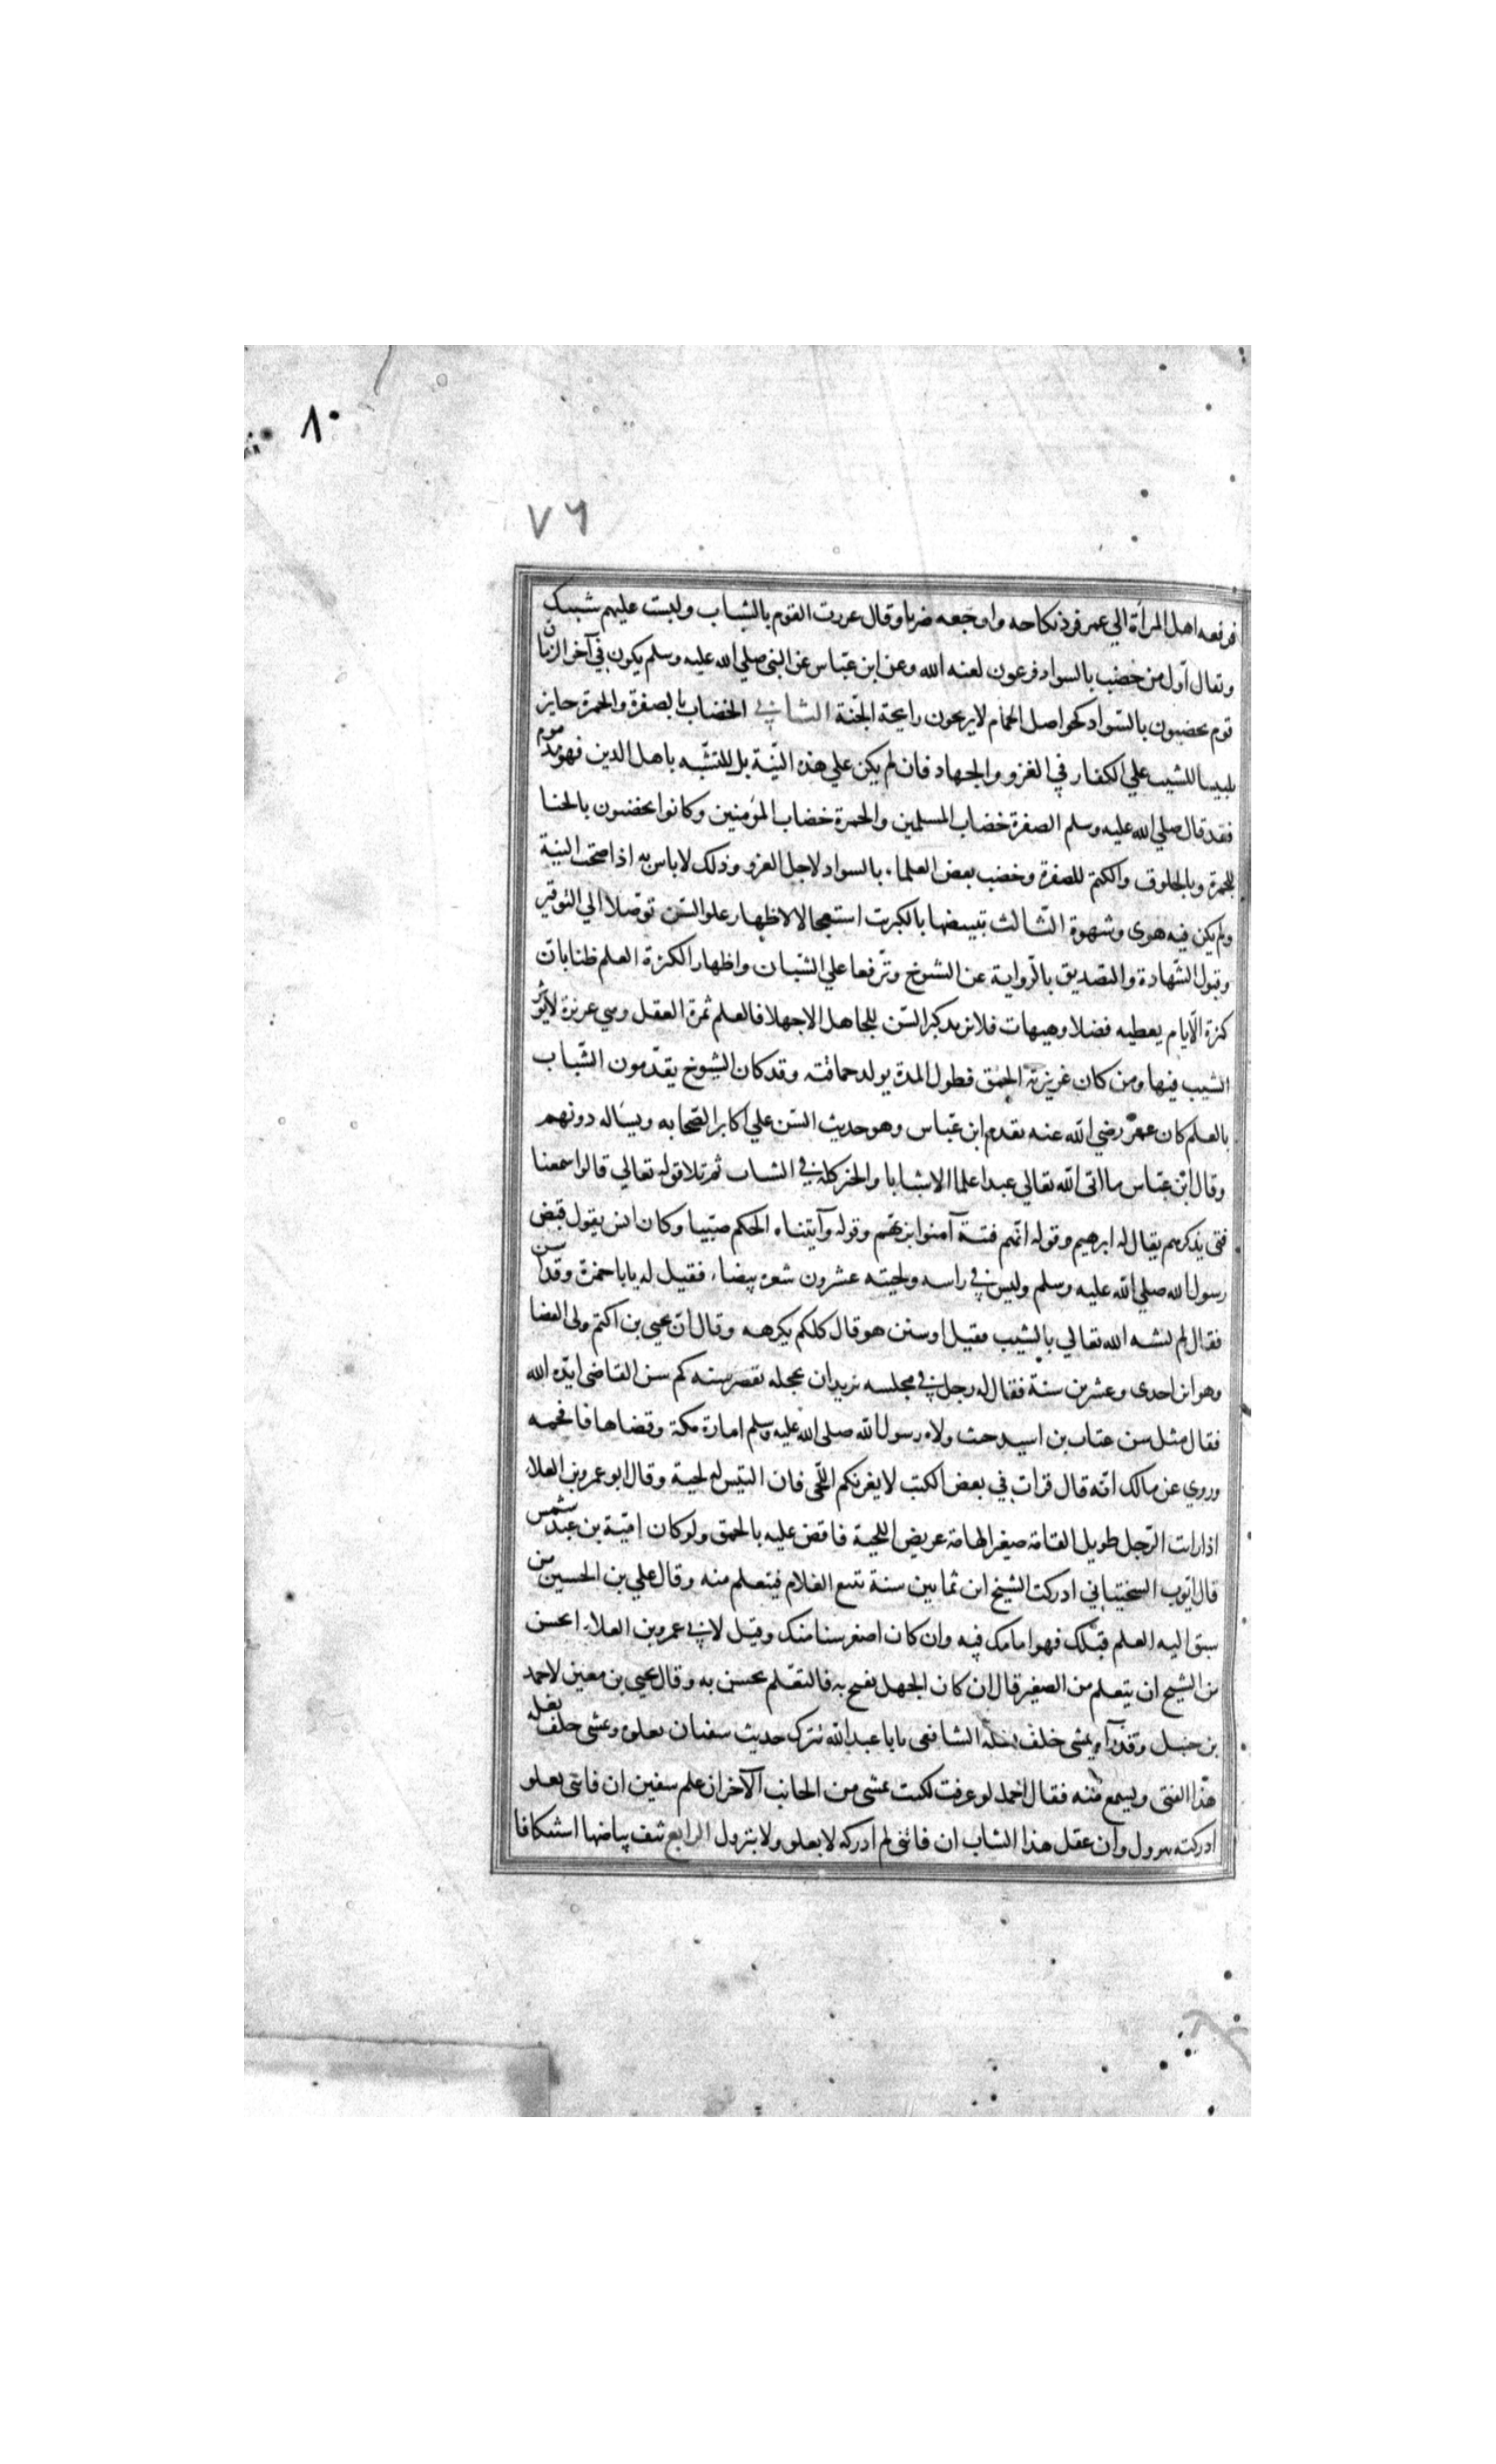 ٨٠
٧٦
فرفعه اهل المرأة الي عمر فرد نكاحه واوجعه ضربا وقال غررت القوم بالشباب ولبست عليهم شيبك
ويقال اول من خضب بالسواد فرعون لعنه الله وعن ابن عباس عن النبي صلي الله عليه وسلم يكون في آخر الزمان
قوم يخضبون بالسواد كحواصل الحمام لا يريحون رايحة الجنة الثاني الخضاب بالصفرة والحمرة جايز
تلبيسا للشيب علي الكفار في الغزو والجهاد فان لم يكن علي هذه النية بل للتشبه باهل الدين فهو مذموم
فقد قال صلي الله عليه وسلم الصفرة خضاب المسلمين والحمرة خضاب المؤمنين وكانوا يخضبون بالحنا
للحمرة وبالخلوق والكتم للصفرة وخضب بعض العلماء بالسواد لاجل الغزو وذلك لا باس به اذا صحت النية
ولم يكن فيه هوى وشهوة الثالث تبييضها بالكبريت استعجالا لاظهار علو السن توصلا الي التوقير
وقبول الشهادة والتصديق بالرواية عن الشيوخ وترفعا علي الشبان واظهارا لكثرة العلم ظنا بان
كثرة الايام يعطيه فضلا وهيهات فلا يزيد كبر السن للجاهل الا جهلا فالعلم ثمرة العقل وهي غريزة لا يؤثر
الشيب فيها ومن كان غريزته الحمق فطول المدة يولد حماقته وقد كان الشيوخ يقدمون الشباب
بالعلم كان عمر رضي الله عنه يقدم ابن عباس وهو حديث السن علي اكابر الصحابه ويساله دونهم
وقال ابن عباس ما اتى الله تعالي عبدا علما الا شابا والخير كله في الشباب ثم تلا قوله تعالي قالوا سمعنا
فتى يذكرهم يقال له ابرهيم وقوله انهم فتية آمنوا بربهم وقوله وآتيناه الحكم صبيا وكان انس يقول قبض
رسول الله صلي الله عليه وسلم وليس في راسه ولحيته عشرون شعرة بيضاء فقيل له يابا حمزة وقد اسن
فقال لم يشنه الله تعالي بالشيب فقيل او شين هو قال كلكم يكرهه وقال ان يحيي بن اكثم ولى القضا
وهو ابن احدى وعشرين سنة فقال له رجل في مجلسه يريد ان يخجله بصغر سنه كم سن القاضى ايده الله
فقال مثل سن عتاب بن اسيد حيث ولاه رسول الله صلي الله عليه وسلم امارة مكة وقضاها فافحمه
وروي عن مالك انه قال قرات في بعض الكتب لا يغرنكم اللحى فان التيس له لحية وقال ابو عمرو بن العلاء
اذا رايت الرجل طويل القامة صغير الهامة عريض اللحية فاقض عليه بالحمق ولو كان امية بن عبد شمس
قال ايوب السختياني ادركت الشيخ ابن ثمانين سنة يتبع الغلام فيتعلم منه وقال علي بن الحسين من
سبق اليه العلم قبلك فهو امامك فيه وان كان اصغر سنا منك وقيل لابي عمرو بن العلاء ايحسن
من الشيخ ان يتعلم من الصغير قال ان كان الجهل يقبح به فالتعلم يحسن به وقال يحيي بن معين لاحمد
بن حنبل وقد رآه يمشي خلف بغلة الشافعي يابا عبد الله تركت حديث سفيان بعلوه وتمشي خلف بغلة
هذا الفتى ويسمع منه فقال احمد لو عرفت لكنت تمشي من الجانب الآخر ان علم سفين ان فاتني بعلو
ادركته بنزول وان عقل هذا الشاب ان فاتني لم ادركه لا بعلو ولا بنزول الرابع نتف بياضها استنكافا